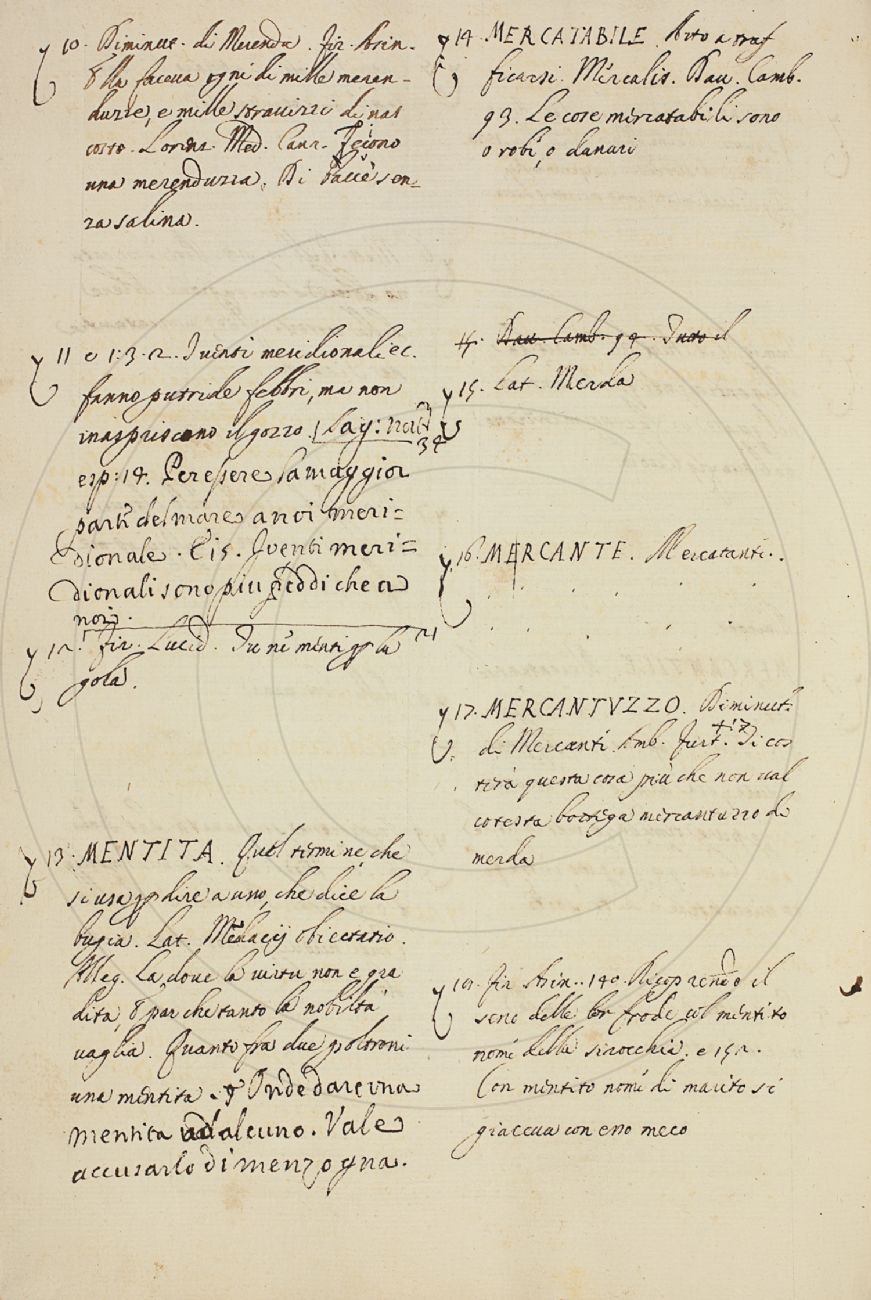 10. Diminut. di Merenda. Fir. Asin.
Ella faceva ogni dì mille meren-
duzze, e mille stravizzi di nas
costo. Lorenz. Med. Canz. Feciono
una merenduzza, Di baccie sen-
za salina.
11 e 1:3.2. I venti meridionali ec.
fanno putride febbri, ma non
inaspriscono il gozzo. Sag: nat
esp: 18. Per essere la maggior
parte del mare a noi meri=
dionale. E 15. I venti meri=
dionali sono piu freddi che a
noi.
12. Fir. Lucid. Tu ne menti p la
gola.
13. MENTITA. Quel termine, che
si usa p dire a uno, che dice la
bugia. Lat. Mēdacij obiectatio.
Meg. La, dove la virtù non e gra
dita, E par che tanto la nobiltà
vaglia. Quanto fra due poltroni
una mentita. Onde dare una
mentita ad alcuno. Vale
accusarlo di menzogna.
14. MERCATABILE. Atto a traf
ficarsi. Mercalis. Dav. Camb.
93. Le cose mercatabili sono
o robe, o danari
Dav. Camb. 94. Tutto il
15. Lat. Merda
16. MERCANTE. Mercatante.
17. MERCANTVZZO. Diminut.
di Mercante. Amb. Furt. 4.17 Ti cos
terà questa cosa più che non val
cotesta bottega mercantuzzo di
merda
19. Fir. Asin. 140. Ricoprendo il
seno delle lor frode col mentito
nome delle sirocchie. e 152.
Con mentito nome di marito si
giaceva con esso meco